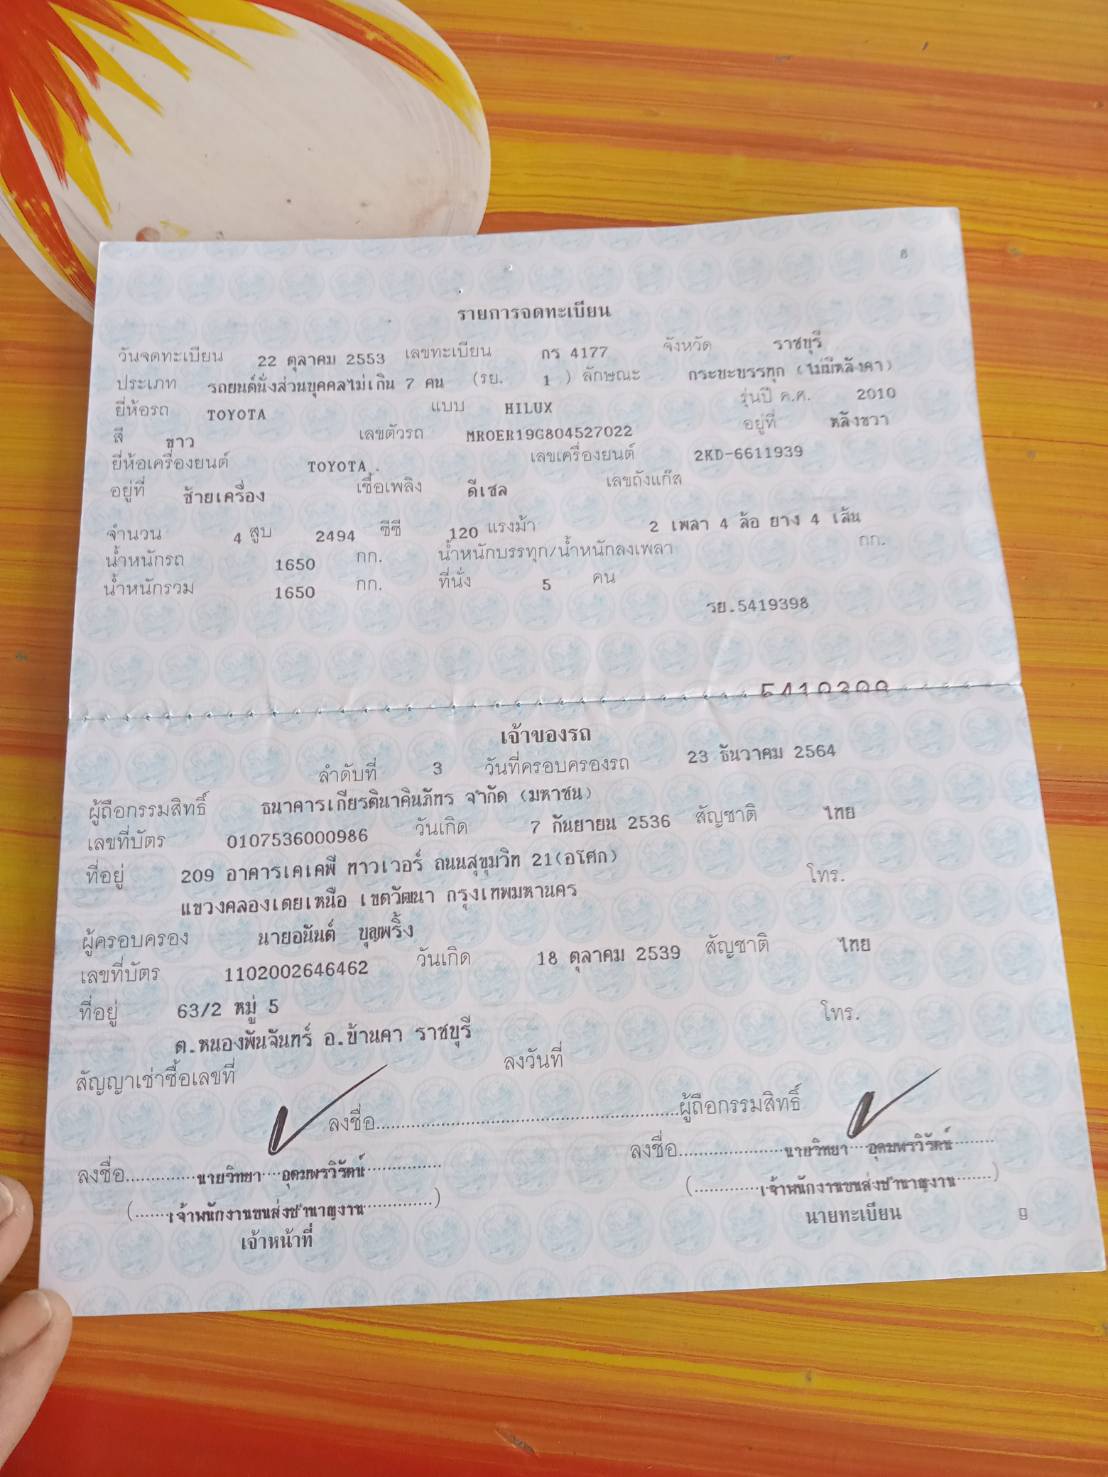 8
รายการจดทะเบียน
วันจดทะเบียน 22 ตุลาคม 2553 เลขทะเบียน กร 4177 จังหวัด ราชบุรี
ประเภท รถยนต์นั่งส่วนบุคคลไม่เกิน 7 คน (รย. 1 ) ลักษณะ กระบะบรรทุก (ไม่มีหลังคา)
ยี่ห้อรถ TOYOTA แบบ HILUX รุ่นปี ค.ศ. 2010
สี ขาว เลขตัวรถ MROER19G804527022 อยู่ที่ หลังขวา
ยี่ห้อเครื่องยนต์ TOYOTA เลขเครื่องยนต์ 2KD-6611939
อยู่ที่ ซ้ายเครื่อง เชื้อเพลิง ดีเซล เลขถังแก๊ส
จำนวน 4 สูบ 2494 ซีซี 120 แรงม้า 2 เพลา 4 ล้อ ยาง 4 เส้น
น้ำหนักรถ 1650 กก. น้ำหนักบรรทุก/น้ำหนักลงเพลา กก.
น้ำหนักรวม 1650 กก. ที่นั่ง 5 คน
รย.5419398
เจ้าของรถ
ลำดับที่ 3 วันที่ครอบครองรถ 23 ธันวาคม 2564
ผู้ถือกรรมสิทธิ์ ธนาคารเกียรตินาคินภัทร จำกัด (มหาชน)
เลขที่บัตร 0107536000986 วันเกิด 7 กันยายน 2536 สัญชาติ ไทย
ที่อยู่ 209 อาคารเคเคพี ทาวเวอร์ ถนนสุขุมวิท 21(อโศก) โทร.
แขวงคลองเตยเหนือ เขตวัฒนา กรุงเทพมหานคร
ผู้ครอบครอง นายอนันต์ บุญพริ้ง
เลขที่บัตร 1102002646462 วันเกิด 18 ตุลาคม 2539 สัญชาติ ไทย
ที่อยู่ 63/2 หมู่ 5 โทร.
ต.หนองพันจันทร์ อ.บ้านคา ราชบุรี
สัญญาเช่าซื้อเลขที่ ลงวันที่
ลงชื่อ.......................................................ผู้ถือกรรมสิทธิ์
ลงชื่อ..............นายวิทยา....อุดมพรวิรัตน์............... ลงชื่อ.....................นายวิทยา....อุดมพรวิรัตน์........
(.......เจ้าพนักงานขนส่งชำนาญงาน..............) (.............เจ้าพนักงานขนส่งชำนาญงาน........)
เจ้าหน้าที่ นายทะเบียน 9